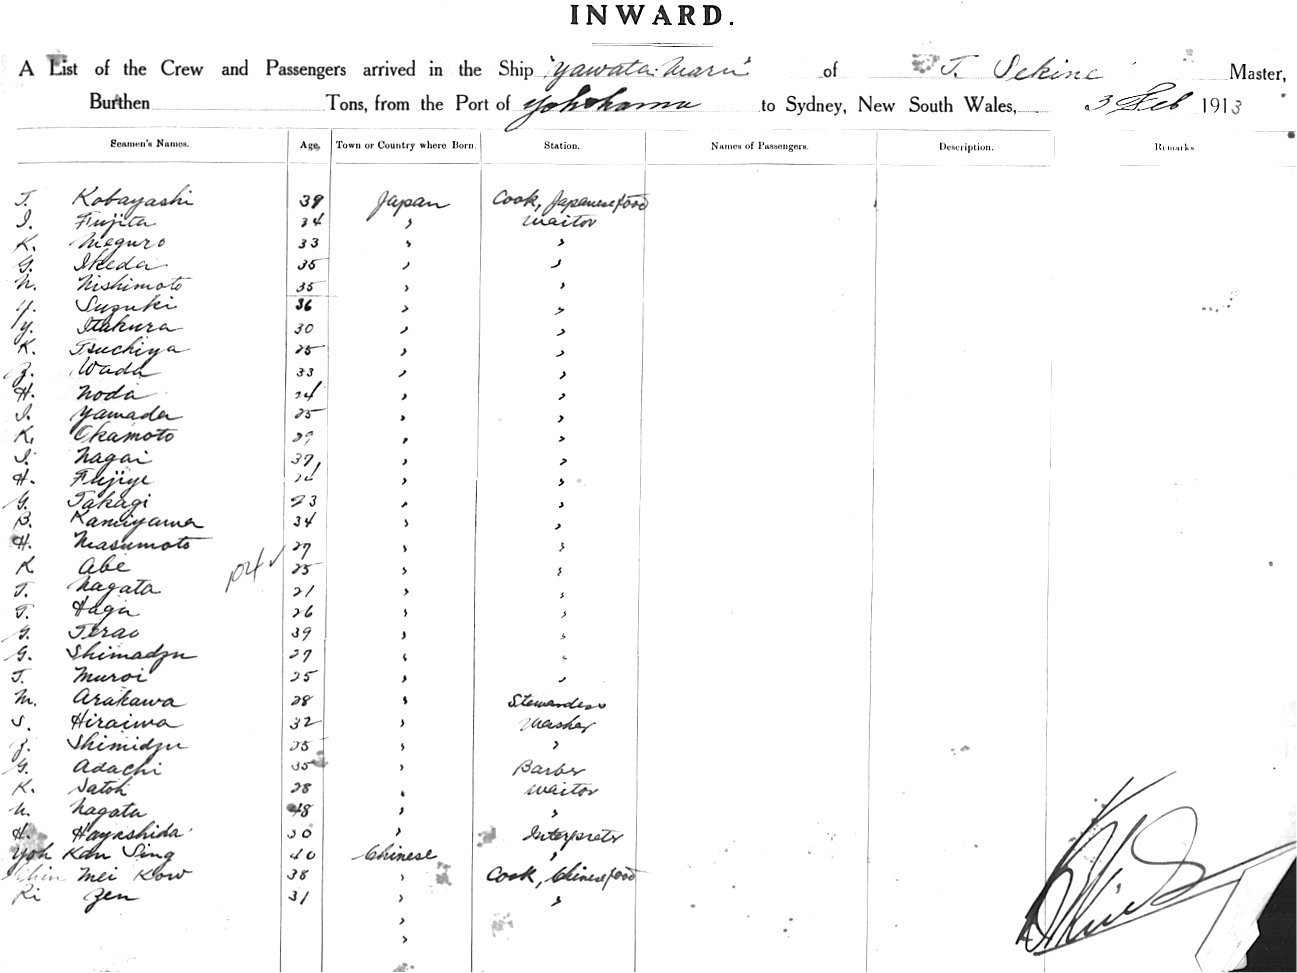 INWARD.
A List of the Crew and Passengers arrived in the Ship "Yawata Maru" of T. Sekine Master,
Burthen Tons, from the Port of Yokohama to Sydney, New South Wales, 3 Feb 1913
Seamen's Names. Age. Town or Country where Born. Station. Names of Passengers. Description. Remarks
T. Kobayashi 39 Japan Cook, Japanese food
I. Fujita 34 " Waitor
K. Meguro 33 " "
G. Ikeda 35 " "
N. Nishimoto 35 " "
Y. Suzuki 36 " "
Y. Itakura 30 " "
K. Tsuchiya 25 " "
Z. Wada 33 " "
H. Noda 24 " "
I. Yamada 25 " "
K. Okamoto 29 " "
I. Nagai 37 " "
H. Fujiye 24 " "
G. Takagi 23 " "
B. Kamiyama 34 " "
H. Masumoto 27 " "
K. Abe 25 " "
T. Nagata 21 " "
T. Haga 26 " "
G. Terao 39 " "
G. Shimadzu 27 " "
T. Muroi 25 " "
M. Arakawa 28 " Stewardess
S. Hiraiwa 32 " Washer
Z. Shimidzu 25 " "
G. Adachi 35 " Barber
K. Satoh 28 " Waitor
N. Nagata 48 " "
H. Hayashida 30 " Interpreter
Yoh Kan Sing 40 Chinese "
Chin Mei Kow 38 " Cook, Chinese food
Ri Zen 31 " "
"
"